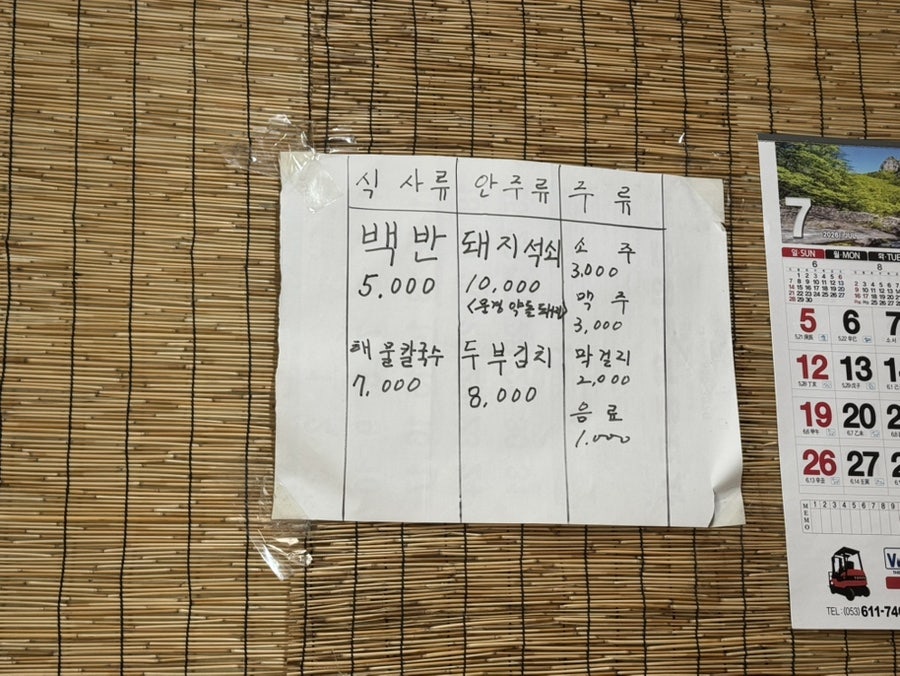 식사류
백반
5.000
해물칼국수
7,000
안주류
돼지석쇠
10,000
<문경약돌돼지>
두부김치
8,000
주류
소주
3,000
맥주
3,000
막걸리
2,000
음료
1.000
7
일·SUN 월·MON 화·TUE
6 8
5 6 7
12 13
19 20
26 27
MEMO 1 2 3 4 5 6 7 8 9
TEL : (053) 611-740